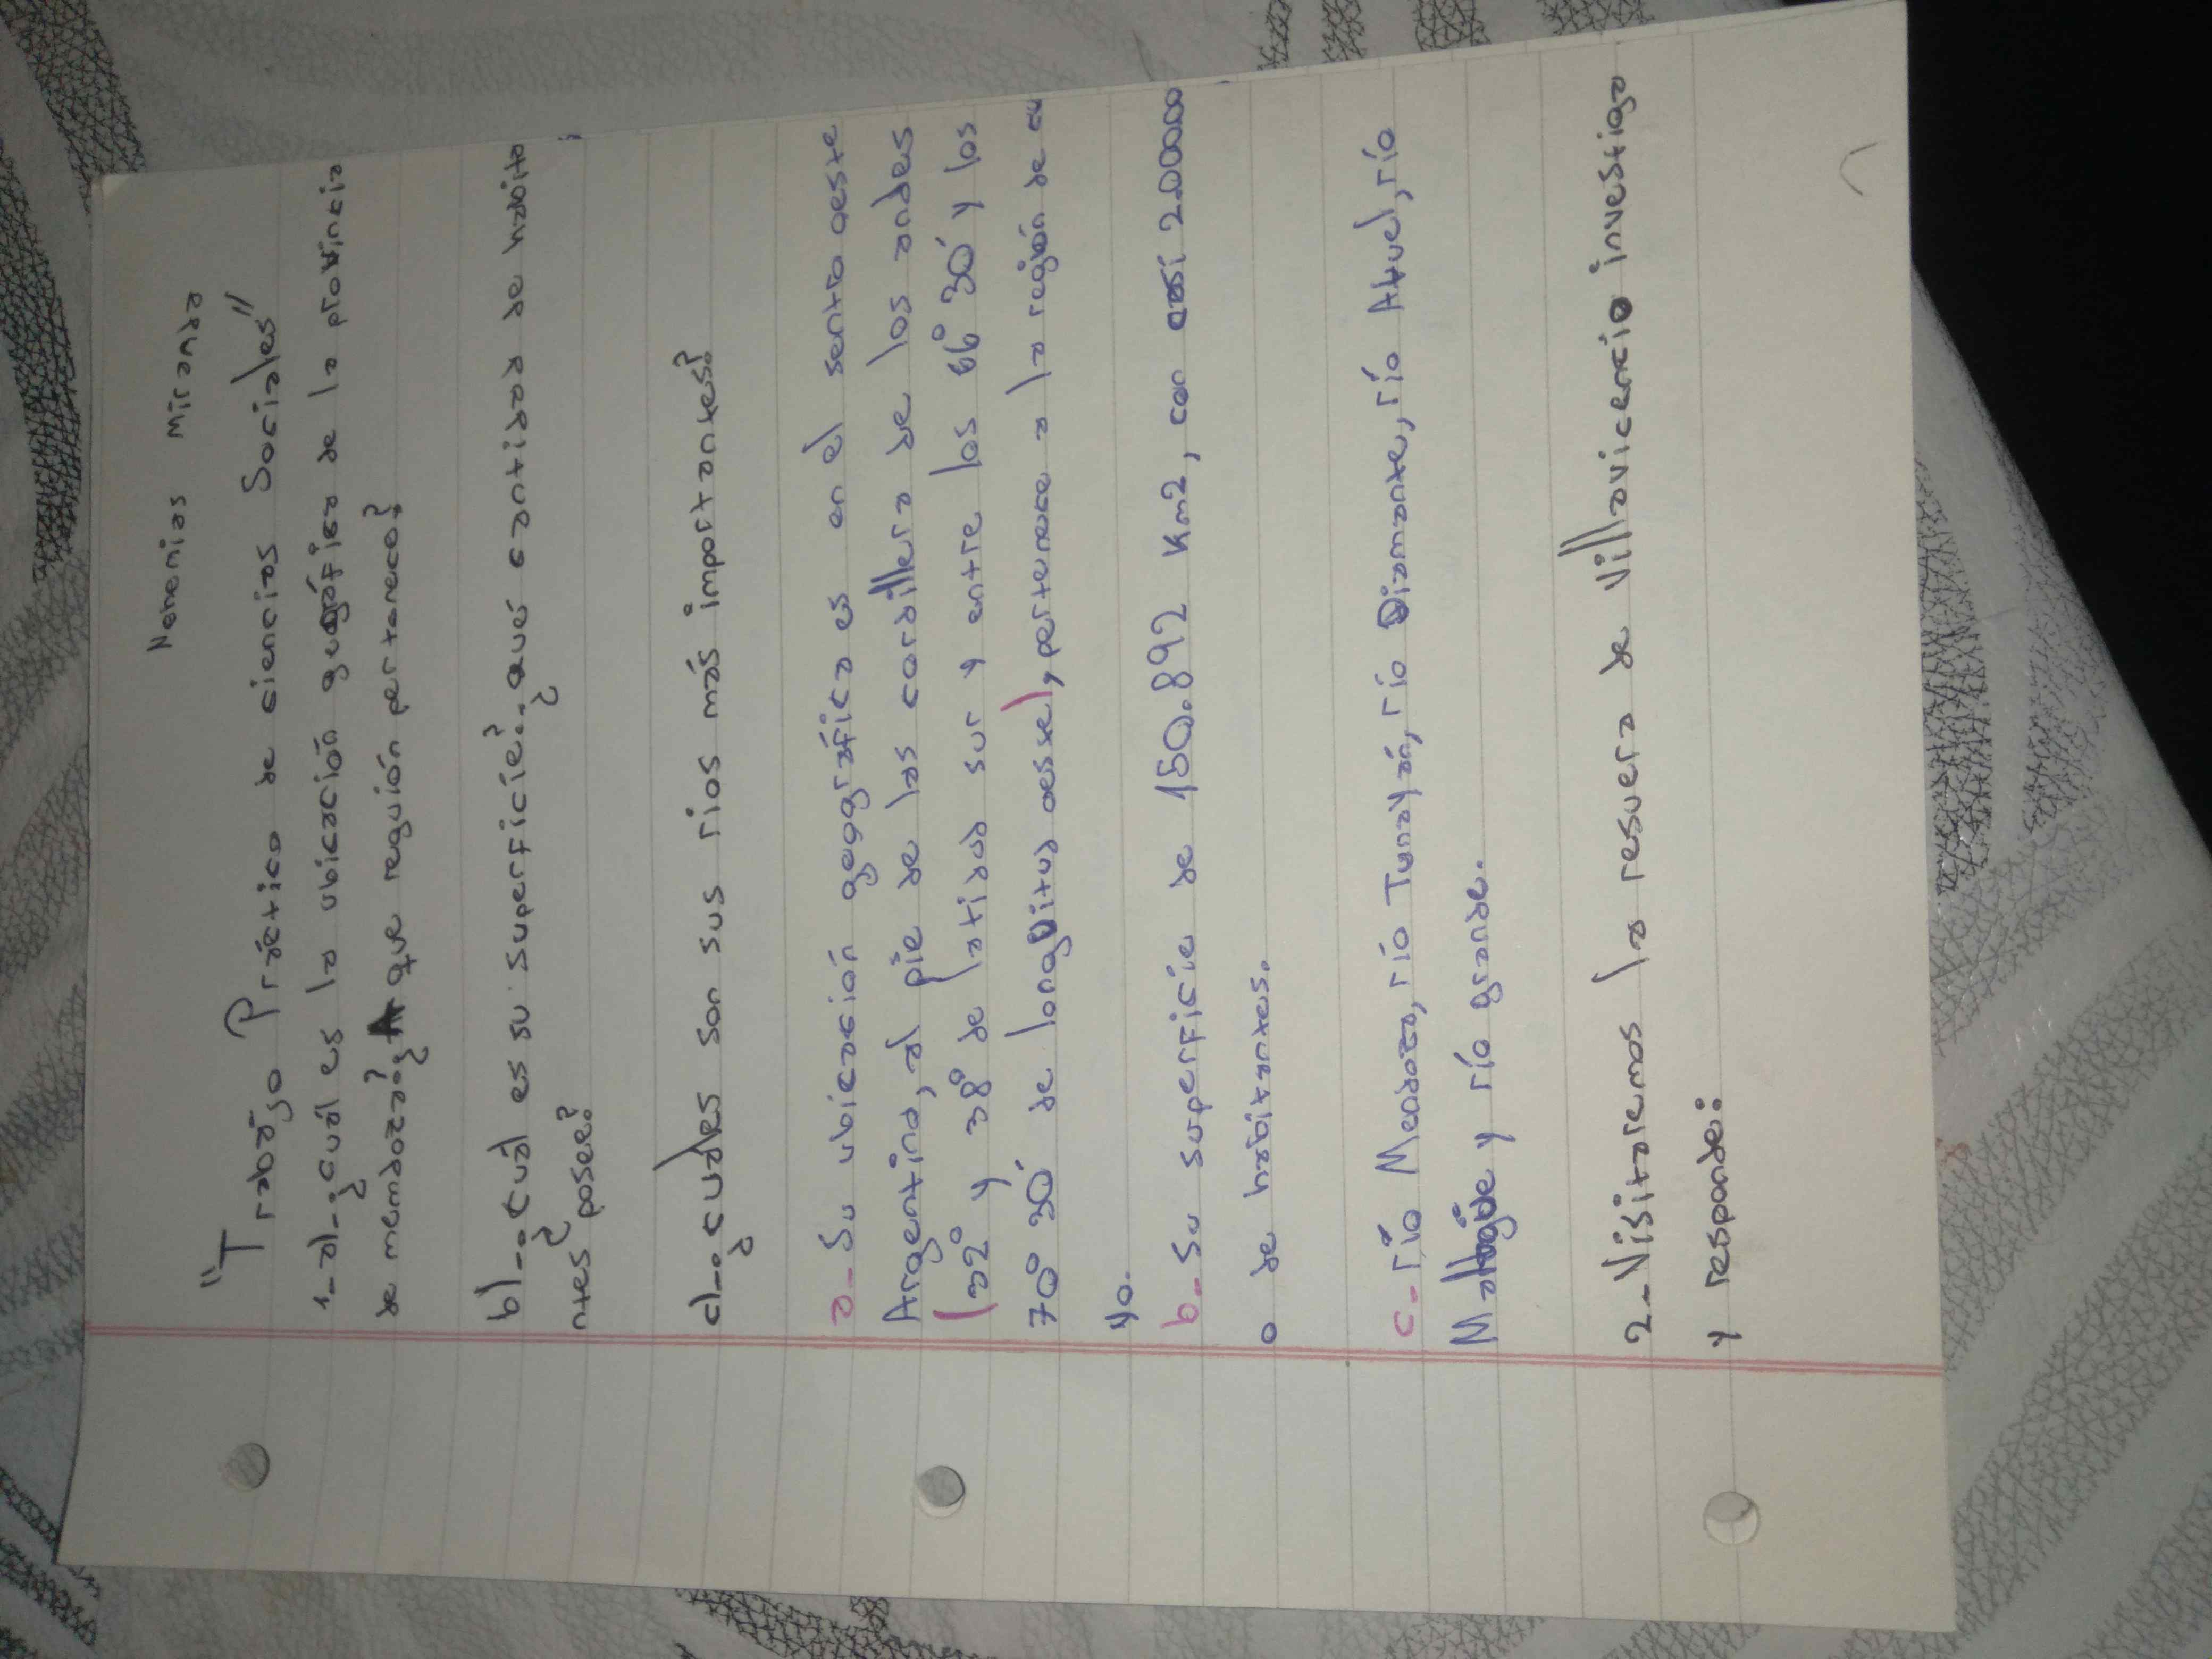 Nehemias Miranda
"Trabájo Práctico de ciencias Sociales"
1-a)-¿cuál es la ubicación geográfica de la provincia
de mendoza? ¿A que reguión pertenece?
b)-¿cuál es su superficíe? ¿que cantidad de habita
ntes posee?
c)-¿cuáles son sus rios más importantes?
a- Su ubicación geográfica es en el sentro oeste
Argentino, al pie de las cordillera de los andes
(32° y 38° de latidud sur y entre los 66° 30' y los
70° 30' de longuitud oesse), pertenece a la región de cu
yo.
b- Su superficie de 150.892 Km2, con casí 200000
0 de habitantes.
c- río Mendoza, río Tunayán, río Diamante, río Atuel, río
Malargüe y río grande.
2-Visitaremos la resuera de Villavicencio investiga
y responde: